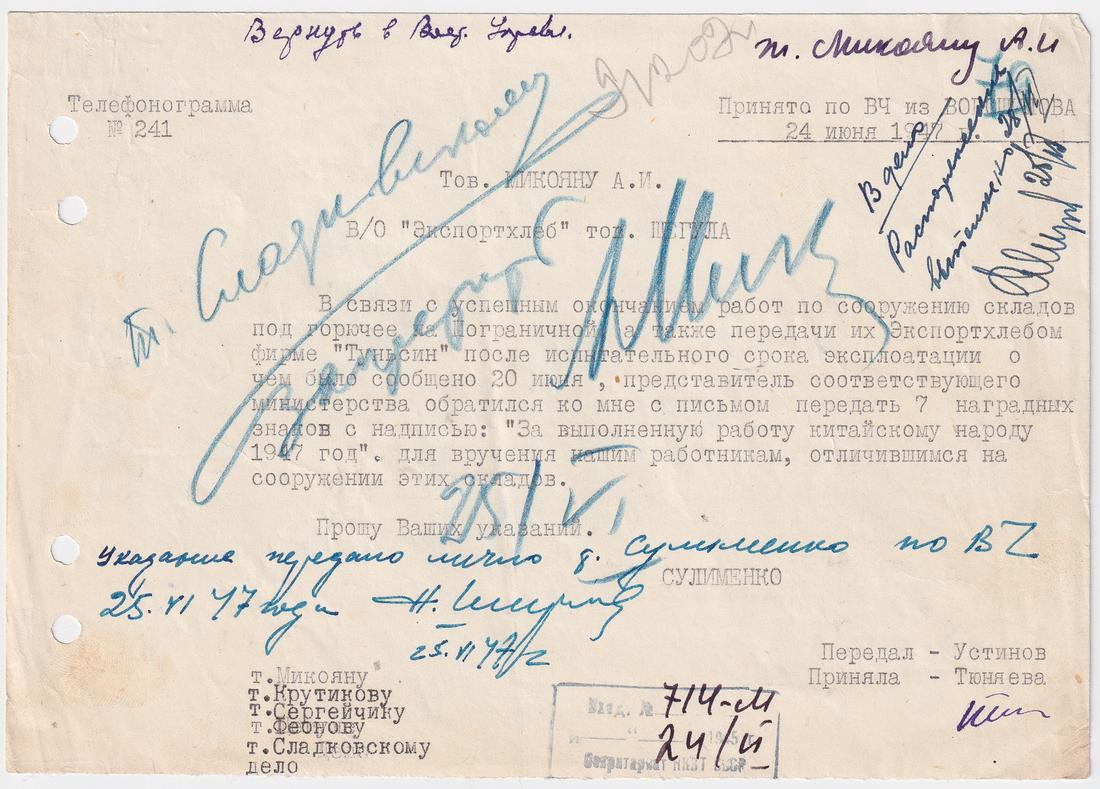 Вернуть в Вост. Управл.
т. Микояну А.И
Телефонограмма
№ 241
Принято по ВЧ из ВОРОШИЛОВА
24 июня 1947 г.
т. Сладковскому
В дело
Тов. МИКОЯНУ А.И.
В/О "Экспортхлеб" тов. ШЕГУЛА
В связи с успешным окончанием работ по сооружению складов
под горючее на Пограничной, а также передачи их Экспортхлебом
фирме "Туньсин" после испытательного срока эксплоатации о
чем было сообщено 20 июня , представитель соответствующего
министерства обратился ко мне с письмом передать 7 наградных
знаков с надписью: "За выполненную работу китайскому народу
1947 год". для вручения нашим работникам, отличившимся на
сооружении этих складов.
25/VI
Прошу Ваших указаний.
Указание передано лично т. Сулименко по ВЧ
СУЛИМЕНКО
25.VI 47 года
25.VI 47 г
Передал - Устинов
Приняла - Тюняева
т.Микояну
т.Крутикову
т.Сергейчику
т.Феонову
т.Сладковскому
дело
Вход. № 714-М
24/VI 1945 г.
Секретариат НКВТ СССР